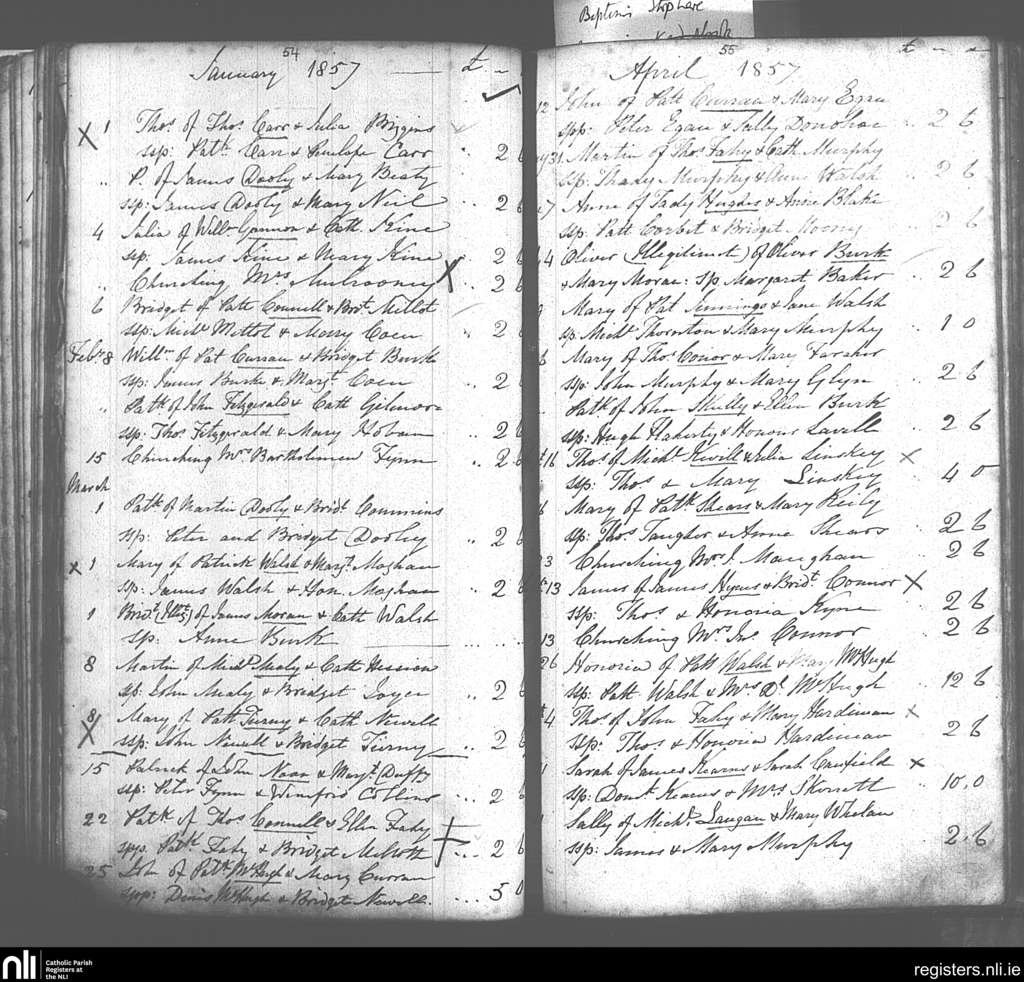 Baptisms
54
January 1857 £
1 Thos. of Thos. Carr & Julia Biggins
ssp: Patk. Carr & Penelope Carr 2 6
" P. of James Dooly & Mary Beaty
sp: James Dooly & Mary Neil 2 6
4 Julia of Willm. Gannon & Cath. Kine
sp: James Kine & Mary Kine 2 6
" Churching Mrs. Mulrooney X 2 6
6 Bridget of Patt Connell & Brt. Millot
ssp: Michl. Mittot & Mary Coen 2 6
Feby. 8 Willm. of Pat Curran & Bridget Burke
ssp: James Burke & Margt. Coen 2
" Patk. of John Fitzgerald & Cath Gilmore
ssp: Thos. Fitzgerald & Mary Hoban 2 6
15 Churching Mrs. Bartholomew Fynn 2 6
March
1 Patk. of Martin Dooly & Bridt. Commins
ssp: Peter and Bridget Dooley 2 6
X 1 Mary of Patrick Walsh & Margt. Moghan
ssp: James Walsh & Hon. Moghan 2 6
1 Bridt. (Illt.) of James Moran & Cath Walsh
sp: Anne Burk
8 Martin of Michl. Mealy & Cath Hession
sp: John Mealy & Bridget Joyce 2 6
8 Mary of Patt Tierny & Cath Newell
ssp: John Newell & Bridget Tierny 2 6
15 Patrick of John Noon & Margt. Duffy
ssp: Peter Fynn & Winefrid Collins 2 6
22 Patk. of Thos. Connell & Ellen Fahy
sps. Patk. Fahy & Bridget McIlott 2 6
25 John of Patk. McHugh & Mary Curran
spp: Denis McHugh & Bridget Newell. 5 0
55
April 1857 £
12 John of Patt Curran & Mary Egan
spp: Peter Egan & Sally Donohoe 2 6
31 Martin of Thos. Fahy & Cath Murphy
ssp: Thady Murphy & Anne Walsh 2 6
7 Anne of Tady Hughes & Anne Blake
ssp: Patt Corbet & Bridget Moony 2 6
4 Oliver (Illegitimate) of Oliver Burk
& Mary Moran: sp Margaret Baker 2 6
Mary of Pat Jennings & Jane Walsh
sp: Michl. Thornton & Mary Murphy 1 0
Mary of Thos. Conor & Mary Faraher
sp: John Murphy & Mary Glyn 2 6
Patk. of John Skully & Ellen Burk
ssp: Hugh Flaherty & Honour Lavelle 2 6
16 Thos. of Michl. & Julia Linskey X
ssp: Thos. & Mary Linskey 4 0
Mary of Patk. Shears & Mary Reily
ssp: Thos. Taugher & Anne Shears 2 6
3 Churching Mrs. J. Maughan 2 6
13 James of James Hynes & Bridt. Connor X
ssp: Thos. & Honoria Kyne 2 6
13 Churching Mrs. Jno. Connor 2 6
26 Honoria of Patt Walsh & Mary McHugh
ssp: Patt Walsh & Mrs. D. McHugh 12 6
4 Thos. of John Fahy & Mary Hardiman X
ssp: Thos & Honoria Hardiman 2 6
Sarah of James Kearns & Sarah Canfield X
sp: Domk. Kearns & Mrs. Skerrett 10.0
Sally of Michl. Langan & Mary Whelan
ssp: James & Mary Murphy 2.6
nli
Catholic Parish
Registers at
the NLI
registers.nli.ie